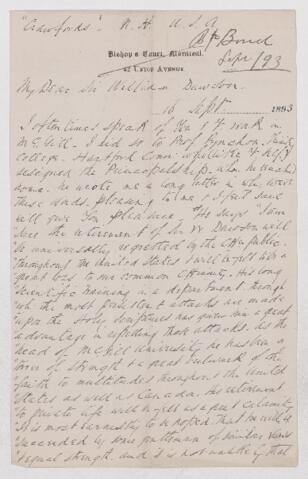 "Crawfords". N. H. U.S.A
Bp Bond
Sept/93
Bishop's Court, Montreal.
42 Union Avenue
My Dear Sir William Dawson.
16 Sept 1893
I often times speak of you & yr work in
McGill. I did so to Prof Lynchon. Trinity
College. Hartford Conn:
designed the Principalship. when he reached
home. he wrote me a long letter in wh. were
these words. pleasing to me, & I feel sure
will give you pleasure. "He says I am
sure the retirement of Sir W Dawson will
be universally regretted by the public.
throughout the United States & will be felt like a
great loss to our common Christianity. His long
scientific training in a department through
wh the most persistent attacks are made
upon the Holy Scriptures has given him a great
advantage in repelling those attacks. As the
head of McGill University he has been a
tower of strength & a great bulwark of the
faith to multitudes throughout the United
States as well as Canada. His retirement
to private life will be felt as a great calamity
It is most earnestly to be hoped that he will be
succeeded by some gentleman of similar views
& equal strength. and it is not unlikely that